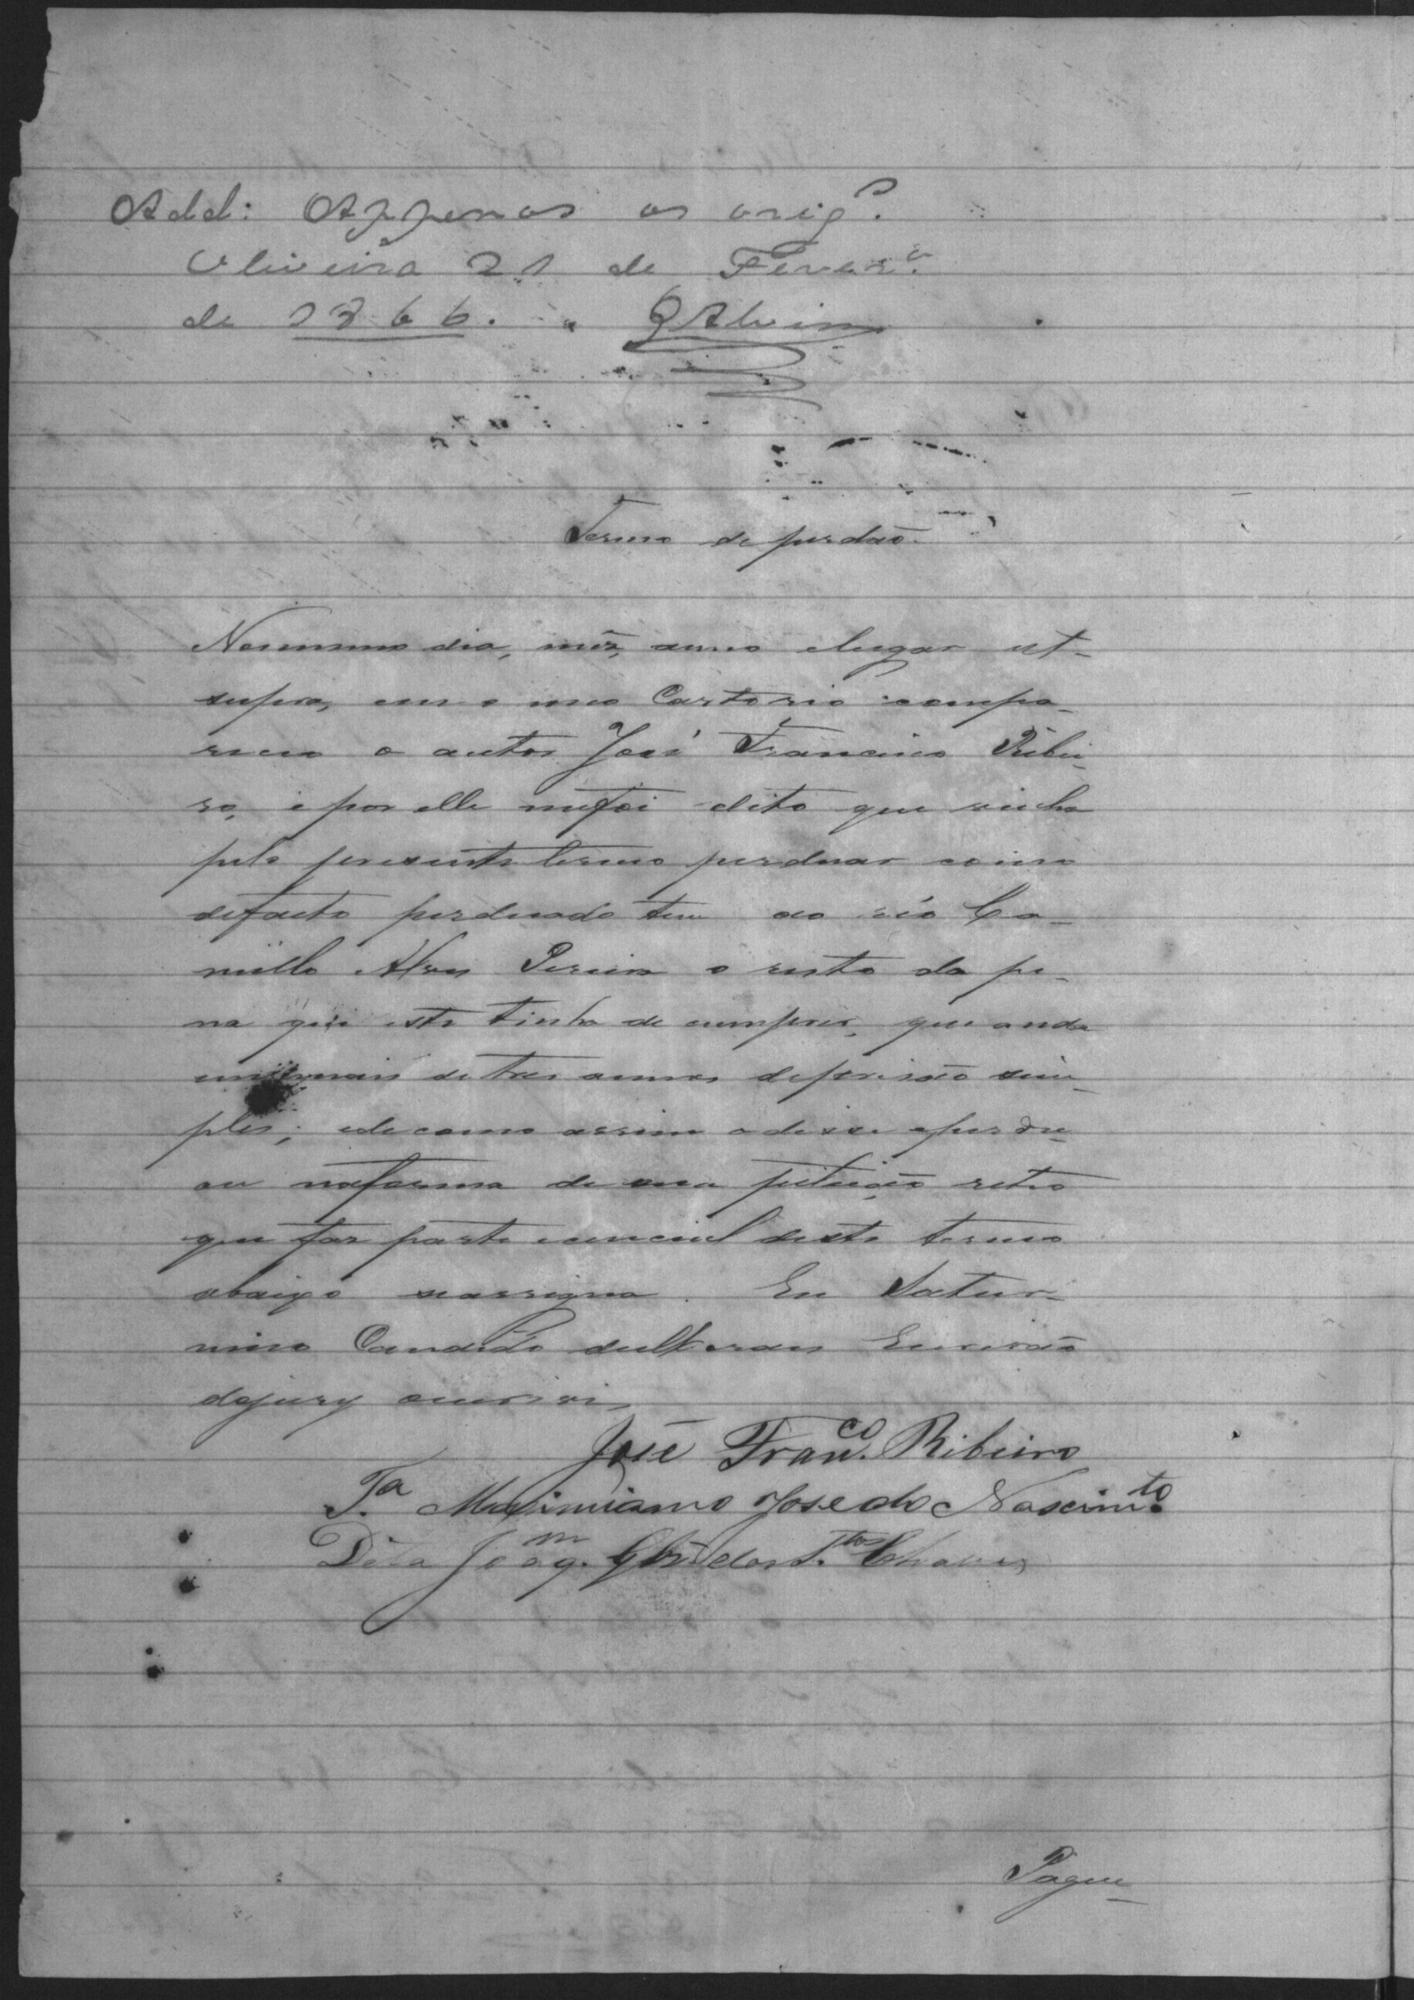 Add: Appenas os orig.s
Oliveira 21 de Fever.o
de 1866. GAlvim
Termo de perdaõ.
Nomesmo dia, mêz, anno elugar ut-
supra, em o meo Cartorio compa-
receo o autor José Francisco Ribei-
ro, e por elle mefoi dito que vinha
pelo presente termo perdoar como
defacto perdoado tem ao réo Ca-
millo Alves Pereira o resto da pe-
na que este tinha de cumprir, que anda
em mais detres annos deprisão sim-
ples; edecomo assim odisse eperdo-
ou naforma de sua petição retro
que faz parte essencial deste termo
abaixo seassigna. Eu Satur-
nino Candido Escrivão
dojury oescrevi.
José Franco. Ribeiro
Ta. Maximiano Jose do Nascimto.
Dita Joaqm. dos Stos. Chaves
Pague